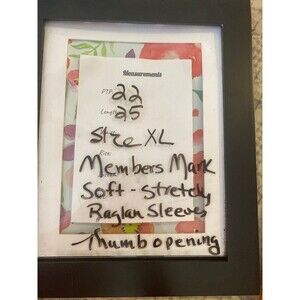 Measurements
PTP: 22
Length: 25
Size XL
Members Mark
Soft - Stretchy
Raglan Sleeves
Thumb opening